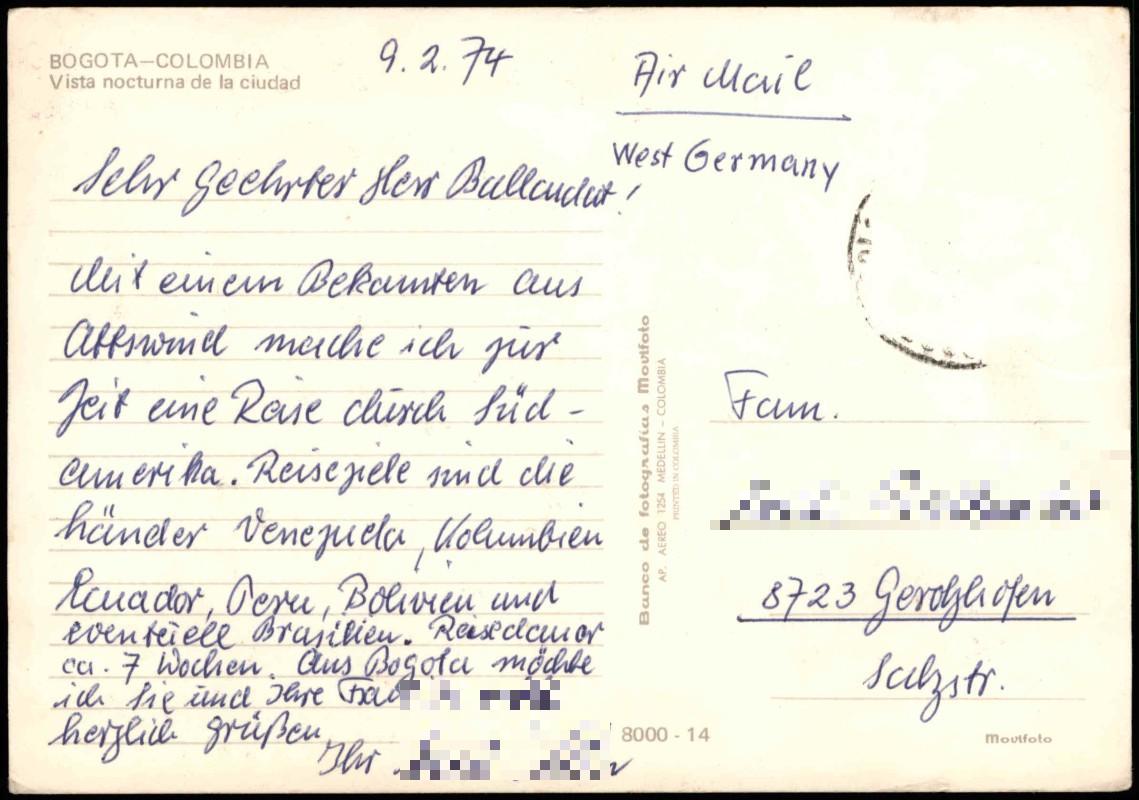 BOGOTA—COLOMBIA
Vista nocturna de la ciudad
9. 2. 74
Sehr geehrter Herr Ballandat!
Mit einem Bekannten aus
machte ich zur
Zeit eine Reise durch Süd-
amerika. Reiseziele sind die
Länder Venezuela, Kolumbien
Ecuador, Peru, Bolivien und
eventuell Brasilien. Reisedauer
ca. 7 Wochen. Aus Bogota möchte
ich Sie und Ihre Frau
herzlich grüßen
Ihr
Air Mail
West Germany
Fam.
8723 Gerolzhofen
Salzstr.
Banco de fotografias Movifoto
AP. AEREO 1254 MEDELLIN - COLOMBIA
PRINTED IN COLOMBIA
8000 - 14
Movifoto